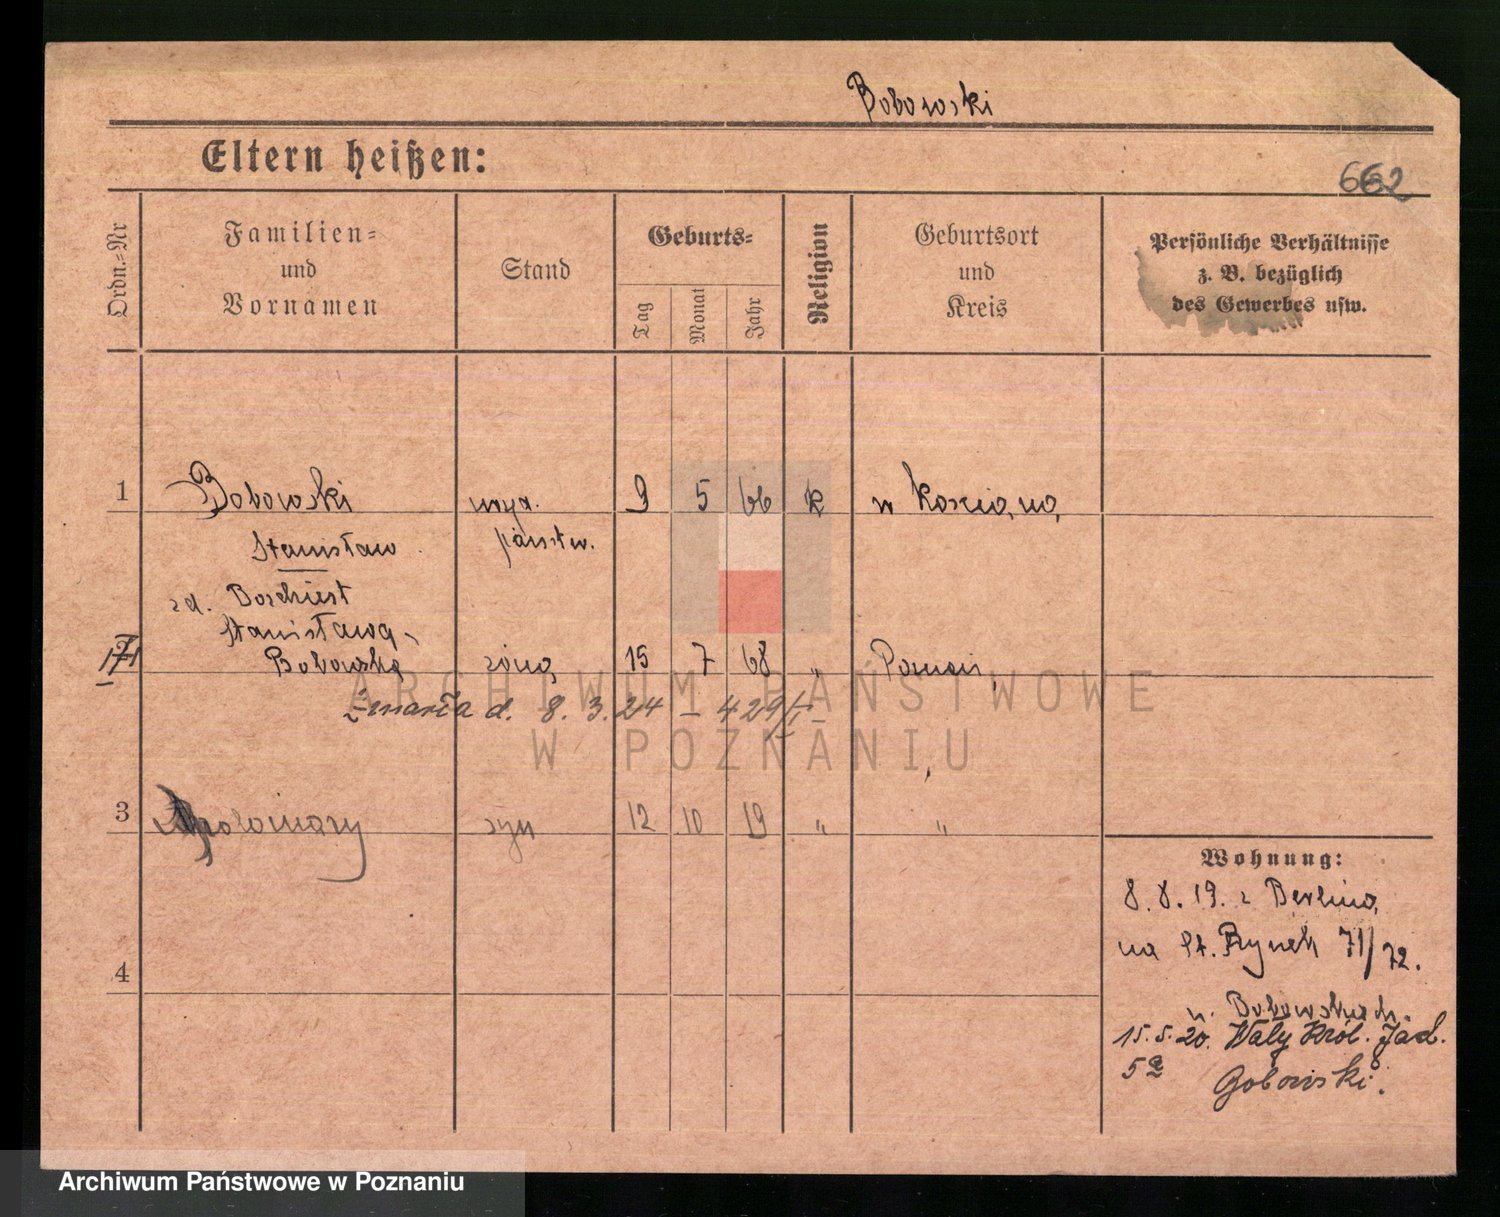 Bobowski
Eltern heißen:
662
Ordn.-Nr
Familien-
und
Vornamen
Stand
Geburts-
Tag
Monat
Jahr
Religion
Geburtsort
und
Kreis
Persönliche Verhältnisse
z. B. bezüglich
des Gewerbes usw.
1 Bobowski 9 5 66 k w
Stanisław państw.
zd. Bochiest
Stanisława
Bobowska żona 15 7 68 " Poznań
zmarła d. 8. 3. 24 – 429/I
3 Apolinary syn 12 10 19 " "
Wohnung:
8. 8. 19. z Berlina
na St. Rynek 71/72.
u. Bobowskich.
15. 5. 20. Wały Król. Jad.
5a Bobowski.
4
ARCHIWUM PAŃSTWOWE
W POZNANIU
Archiwum Państwowe w Poznaniu